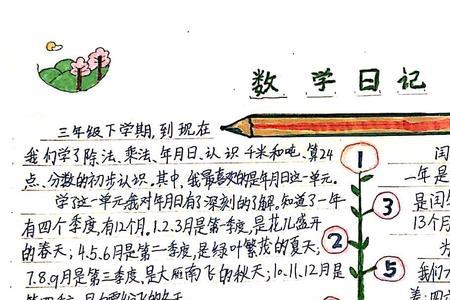 数学日记
三年级下学期,到现在
我们学了除法、乘法、年月日、认识千米和吨、算24
点、分数的初步认识。其中,我最喜欢的是年月日这一单元。
学了这一单元我对年月日有了深刻的了解。知道了一年
有四个季度,有12个月。1.2.3月是第一季度,是花儿盛开
的春天;4.5.6月是第二季度,是绿叶繁茂的夏天;
7.8.9月是第三季度,是大雁南飞的秋天;10.11.12月是
1
3
2
5
闰
一年是
是闰
13个月
我们